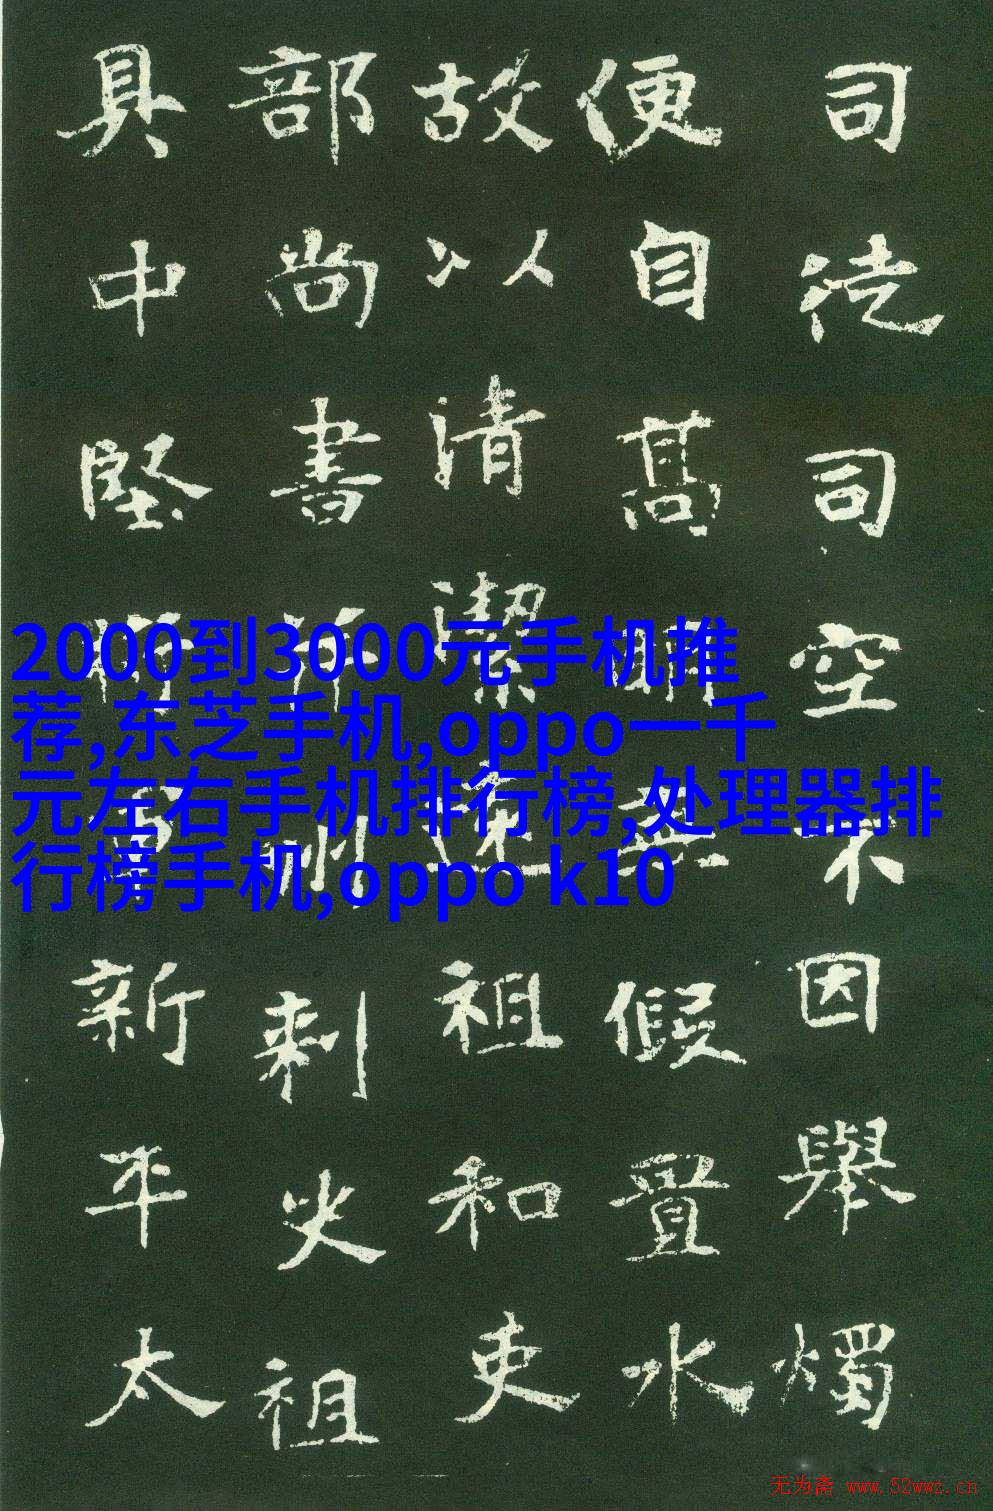 司徒司空不因舉燭
便自髙明無假置水
故以清潔遠祖和吏
部尚書竹刺火祖
具中堅新平太
2000到3000元手机推
荐,东芝手机,oppo一千
元左右手机排行榜,处理器排
行榜手机,oppo k10
无为斋 www.52wwz.cn